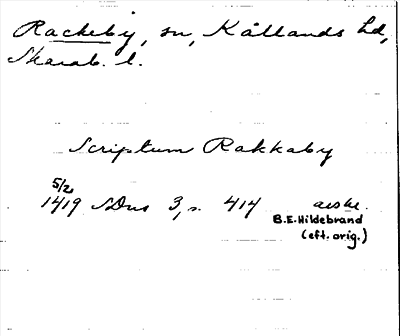 Rackeby, sn, Kållands hd,
Skarab. l.
Scriptum Rakkaby
5/2
1419 SDns 3, s. 414 avskr.
B.E. Hildebrand
(eft. orig.)